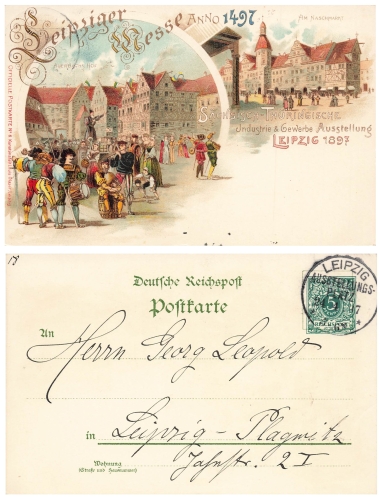 Leipziger Messe
ANNO 1497
AM NASCHMARKT
SÄCHSISCH-THÜRINGISCHE
Industrie & Gewerbe Ausstellung
LEIPZIG 1897
Deutsche Reichspost
Postkarte
An
Herrn Georg Leopold
in Leipzig-Plagwitz
Wohnung
(Straße und Hausnummer)
Jahnstr. 2 I
LEIPZIG
AUSSTELLUNGS-
PLATZ
5